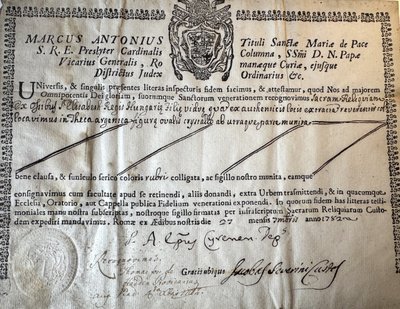 MARCUS ANTONIUS
S. R. E. Presbyter Cardinalis
Vicarius Generalis, Ro
Districtus Judex
Tituli Sanctæ Mariæ de Pace
Columna, SSmi D. N. Papæ
manæque Curiæ, ejusque
Ordinarius &c.
Universis, & singulis præsentes literas inspecturis fidem facimus, & attestamur, quod Nos ad majorem
Omnipotentis Dei gloriam, suorumque Sanctorum venerationem recognovimus Sacram Reliquiam
Ex Ossibus S. Elisabeth Regis Hungariæ Filiæ viduæ quam ex authenticis locis extractam reverenter col
locavimus in Theca argentea figuræ ovalis crystallo ab utraque parte munita
bene clausa, & funiculo serico coloris rubri colligata, ac sigillo nostro munita, eamque
consignavimus cum facultate apud se retinendi, aliis donandi, extra Urbem transmittendi, & in quacumque
Ecclesia, Oratorio, aut Cappella publicæ Fidelium venerationi exponendi. In quorum fidem has litteras testimo-
niales manu nostra subscriptas, nostroque sigillo firmatas per infrascriptum Sacrarum Reliquiarum Custo-
dem expediri mandavimus. Romæ ex Ædibus nostris die 27 mensis Aprilis anno 1782
F. A. Epus Cyrenen
Gratis ubique Jacobus Severini Custos